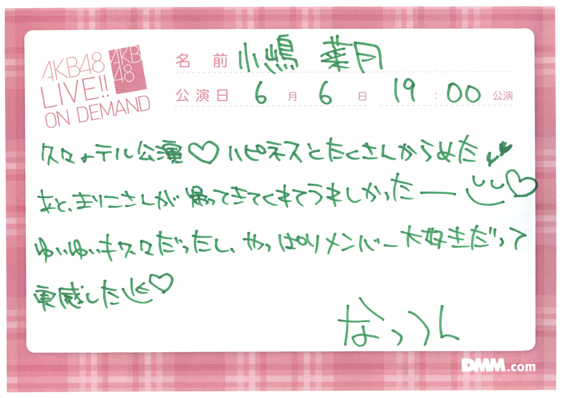 AKB48
LIVE!!
ON DEMAND
AKB
48
名 前 小嶋 菜月
公演日 6 月 6 日 19 : 00 公演
久々のテル公演♡ ハピネスとたくさんからめた
あと、まりこさんが帰ってきてくれてうれしかったー ♡
ゆいゆいも久々だったし、やっぱりメンバー大好きだって
実感した♡
なっつん
DMM.com